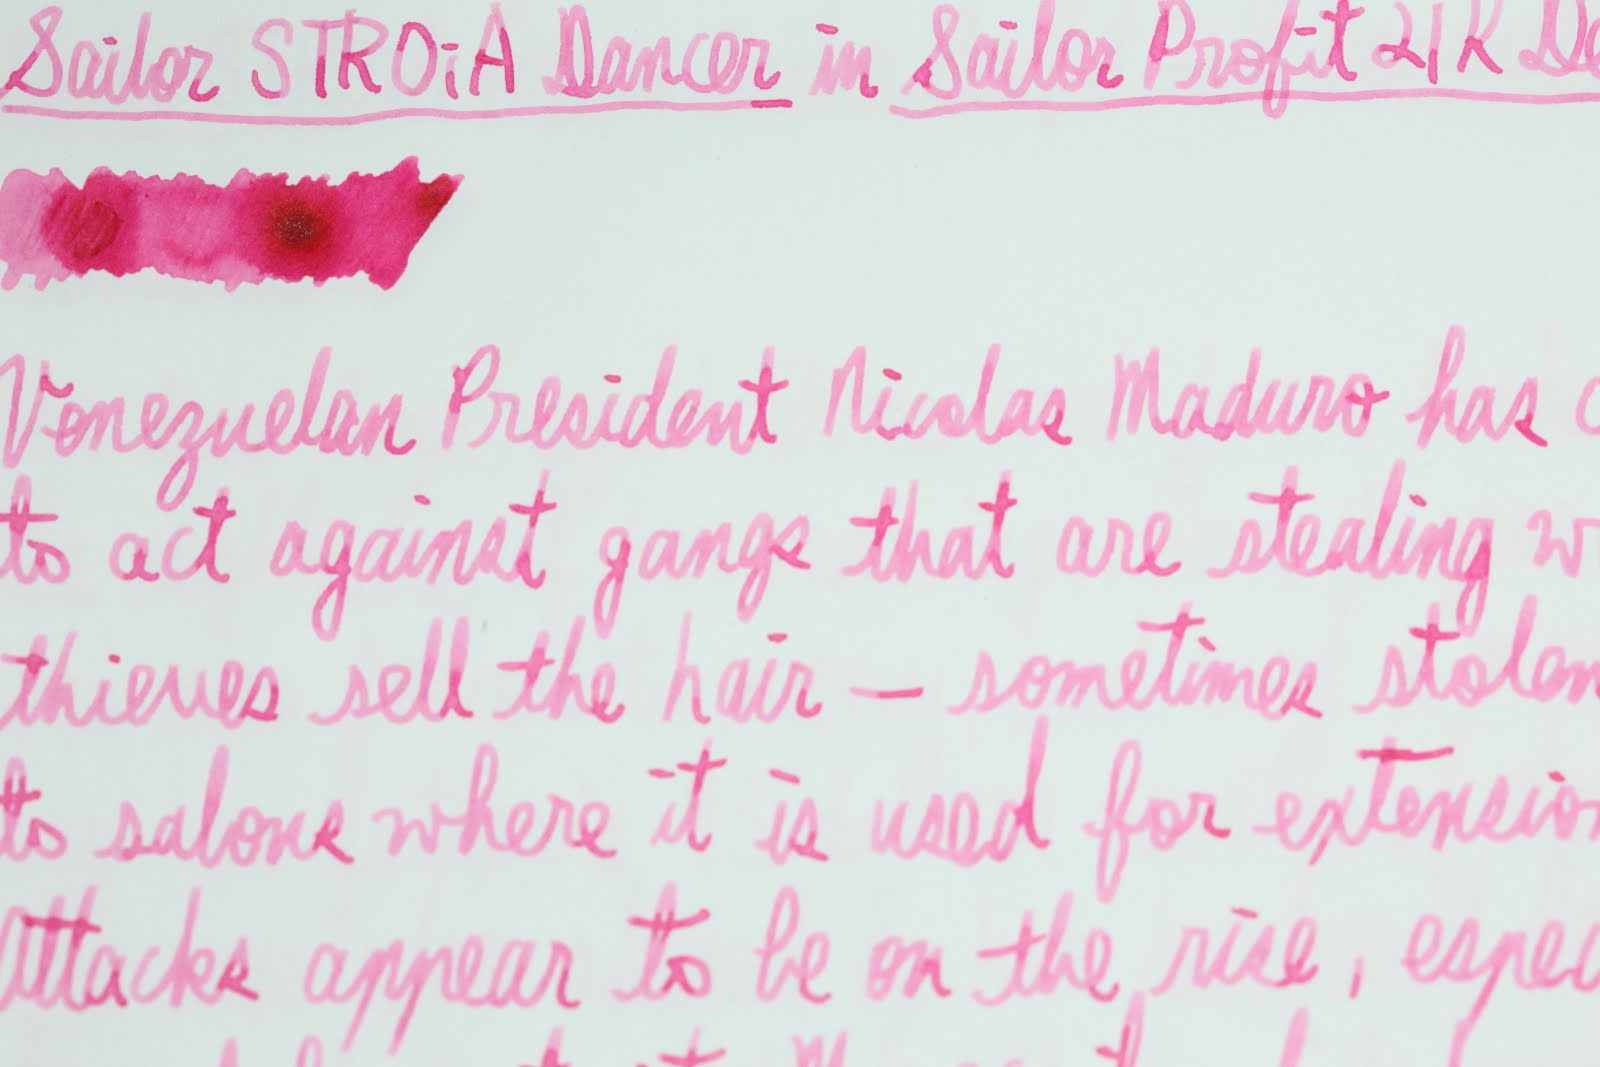 Sailor STROiA Dancer in Sailor Profit 21K
Venezuelan President Nicolas Maduro has
to act against gangs that are stealing
thieves sell the hair — sometimes stolen
to salons where it is used for
Attacks appear to be on the rise,